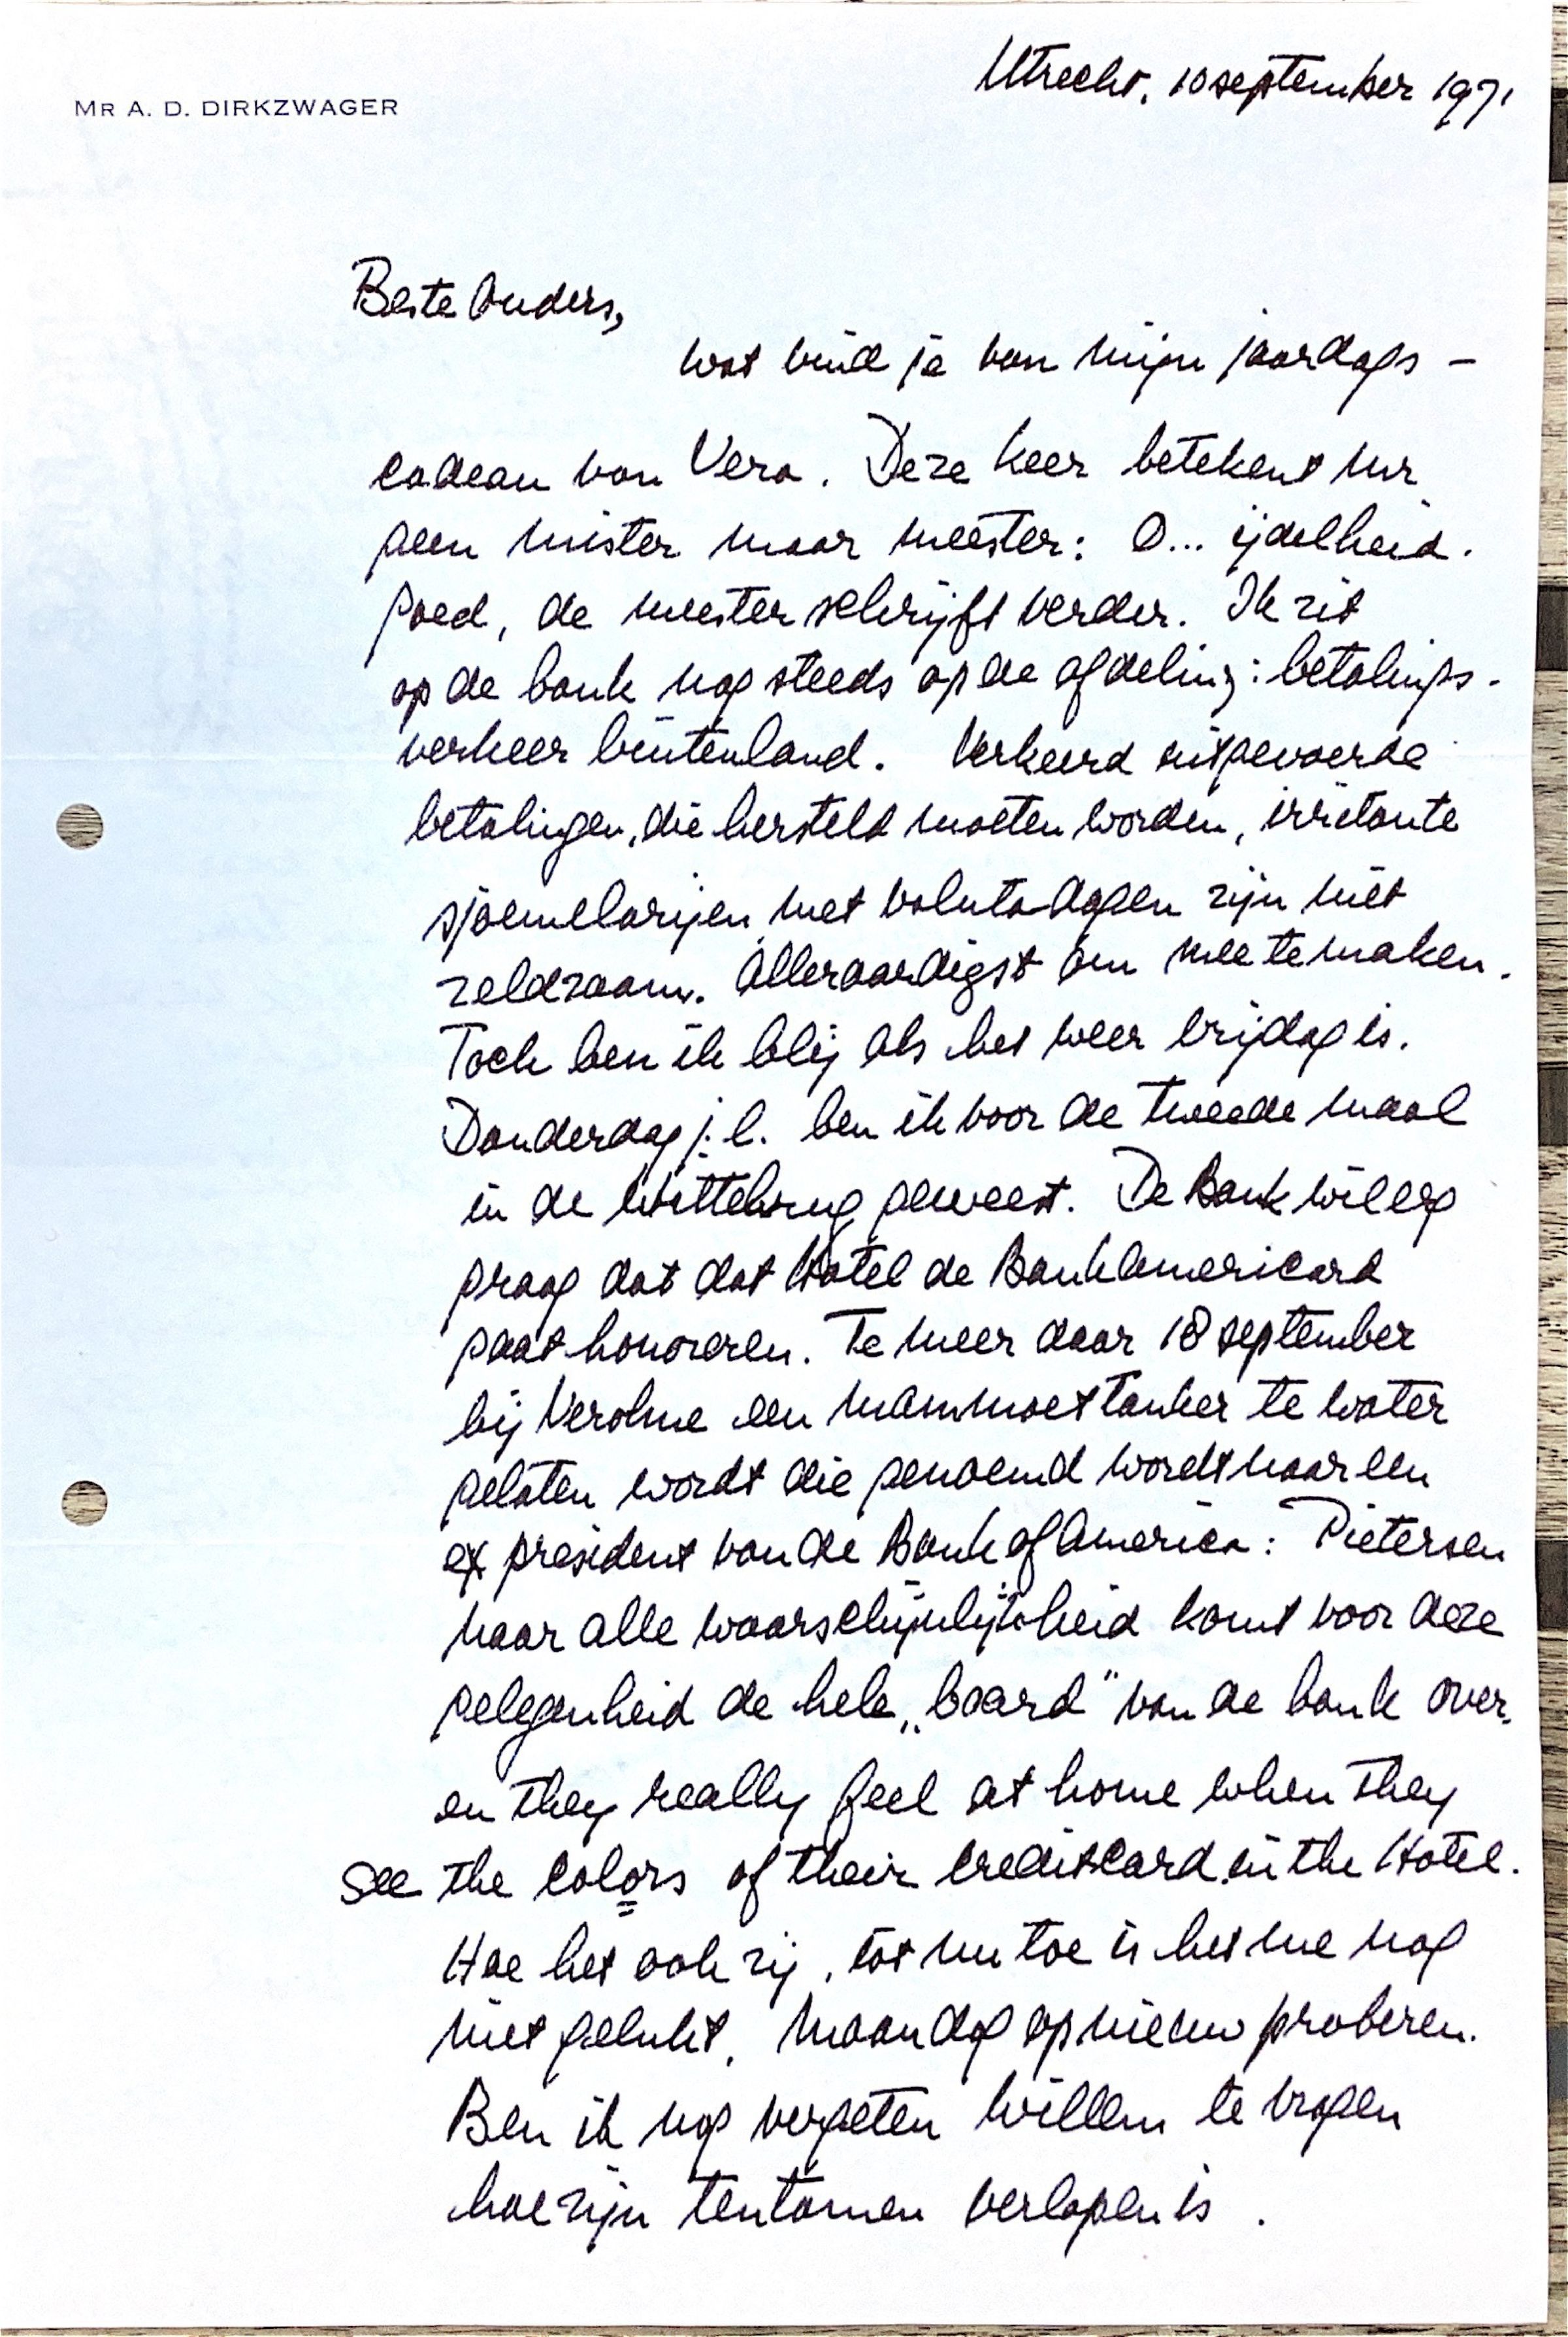 Utrecht, 10 september 1971
MR A. D. DIRKZWAGER
Beste Ouders,
wat vind je van mijn jaardags-
cadeau van Vera. Deze keer betekent mr
geen mister maar meester: O... ijdelheid.
Goed, de meester schrijft verder. Ik zit
op de bank nog steeds op de afdeling: betalings-
verkeer buitenland. Verkeerd uitgevoerde
betalingen, die hersteld moeten worden, irritante
sjoemelarijen met valuta dagen zijn niet
zeldzaam. Alleraardigst om mee te maken.
Toch ben ik blij als het weer vrijdag is.
Donderdag j.l. ben ik voor de tweede maal
in de Wittebrug geweest. De Bank wil erg
graag dat dat Hotel de BankAmericard
gaat honoreren. Te meer daar 18 september
bij Verolme een mammoettanker te water
gelaten wordt die genoemd wordt naar een
ex president van de Bank of America: Pietersen
naar alle waarschijnlijkheid komt voor deze
gelegenheid de hele „board" van de bank over.
en they really feel at home when they
see the colors of their creditcard in the Hotel.
Hoe het ook zij, tot nu toe is het me nog
niet gelukt, maandag opnieuw proberen.
Ben ik nog vergeten Willem te vragen
hoe zijn tentamen verlopen is.